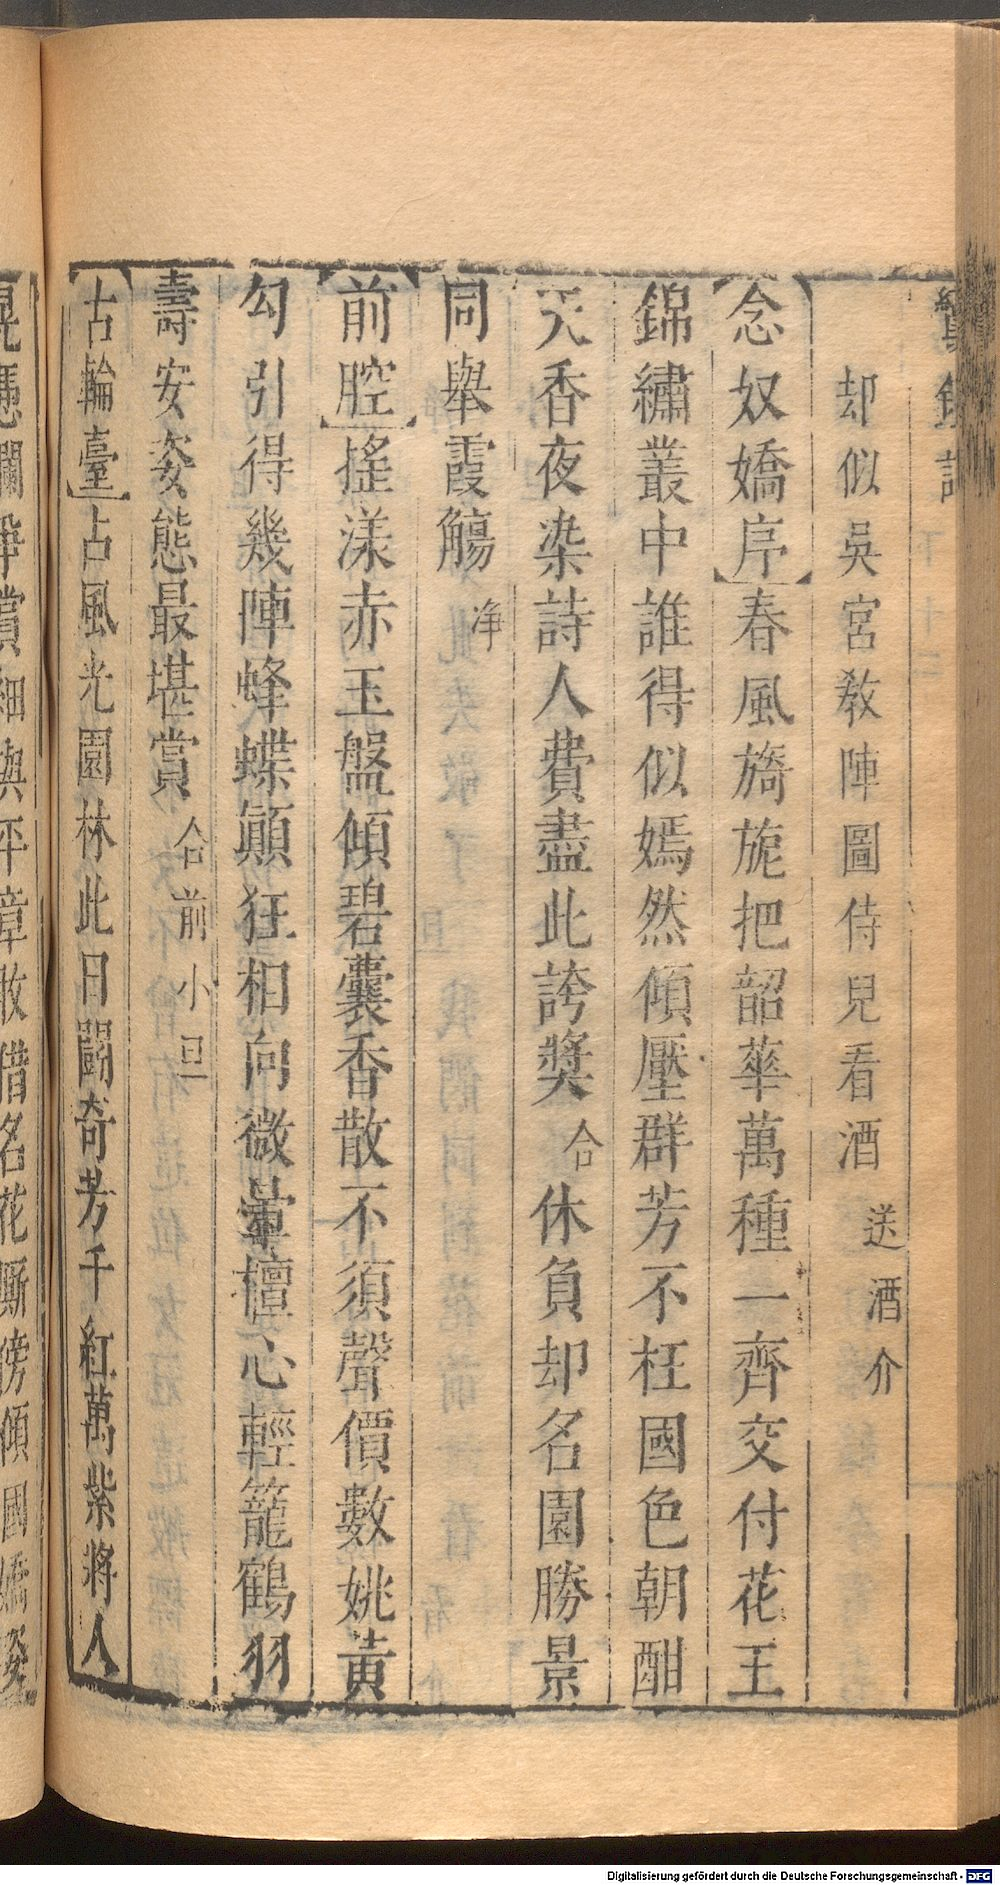 却似吳宮教陣圖侍兒看酒送酒介
念奴嬌序春風旖旎把韶華萬種一齊交付花王
錦繡叢中誰得似嫣然傾壓群芳不枉國色朝酣
天香夜染詩人費盡此誇獎合休負却名園勝景
同舉霞觴淨
前腔搖漾赤玉盤傾碧囊香散不須聲價數姚黃
勾引得幾陣蜂蝶顛狂相向微暈檀心輕籠鶴羽
壽安姿態最堪賞合前小旦
古輪臺占風光園林此日鬪奇芳千紅萬紫將人
憑欄爭賞細與平章敢借名花厮傍傾國嬌姿
Digitalisierung gefördert durch die Deutsche Forschungsgemeinschaft - DFG